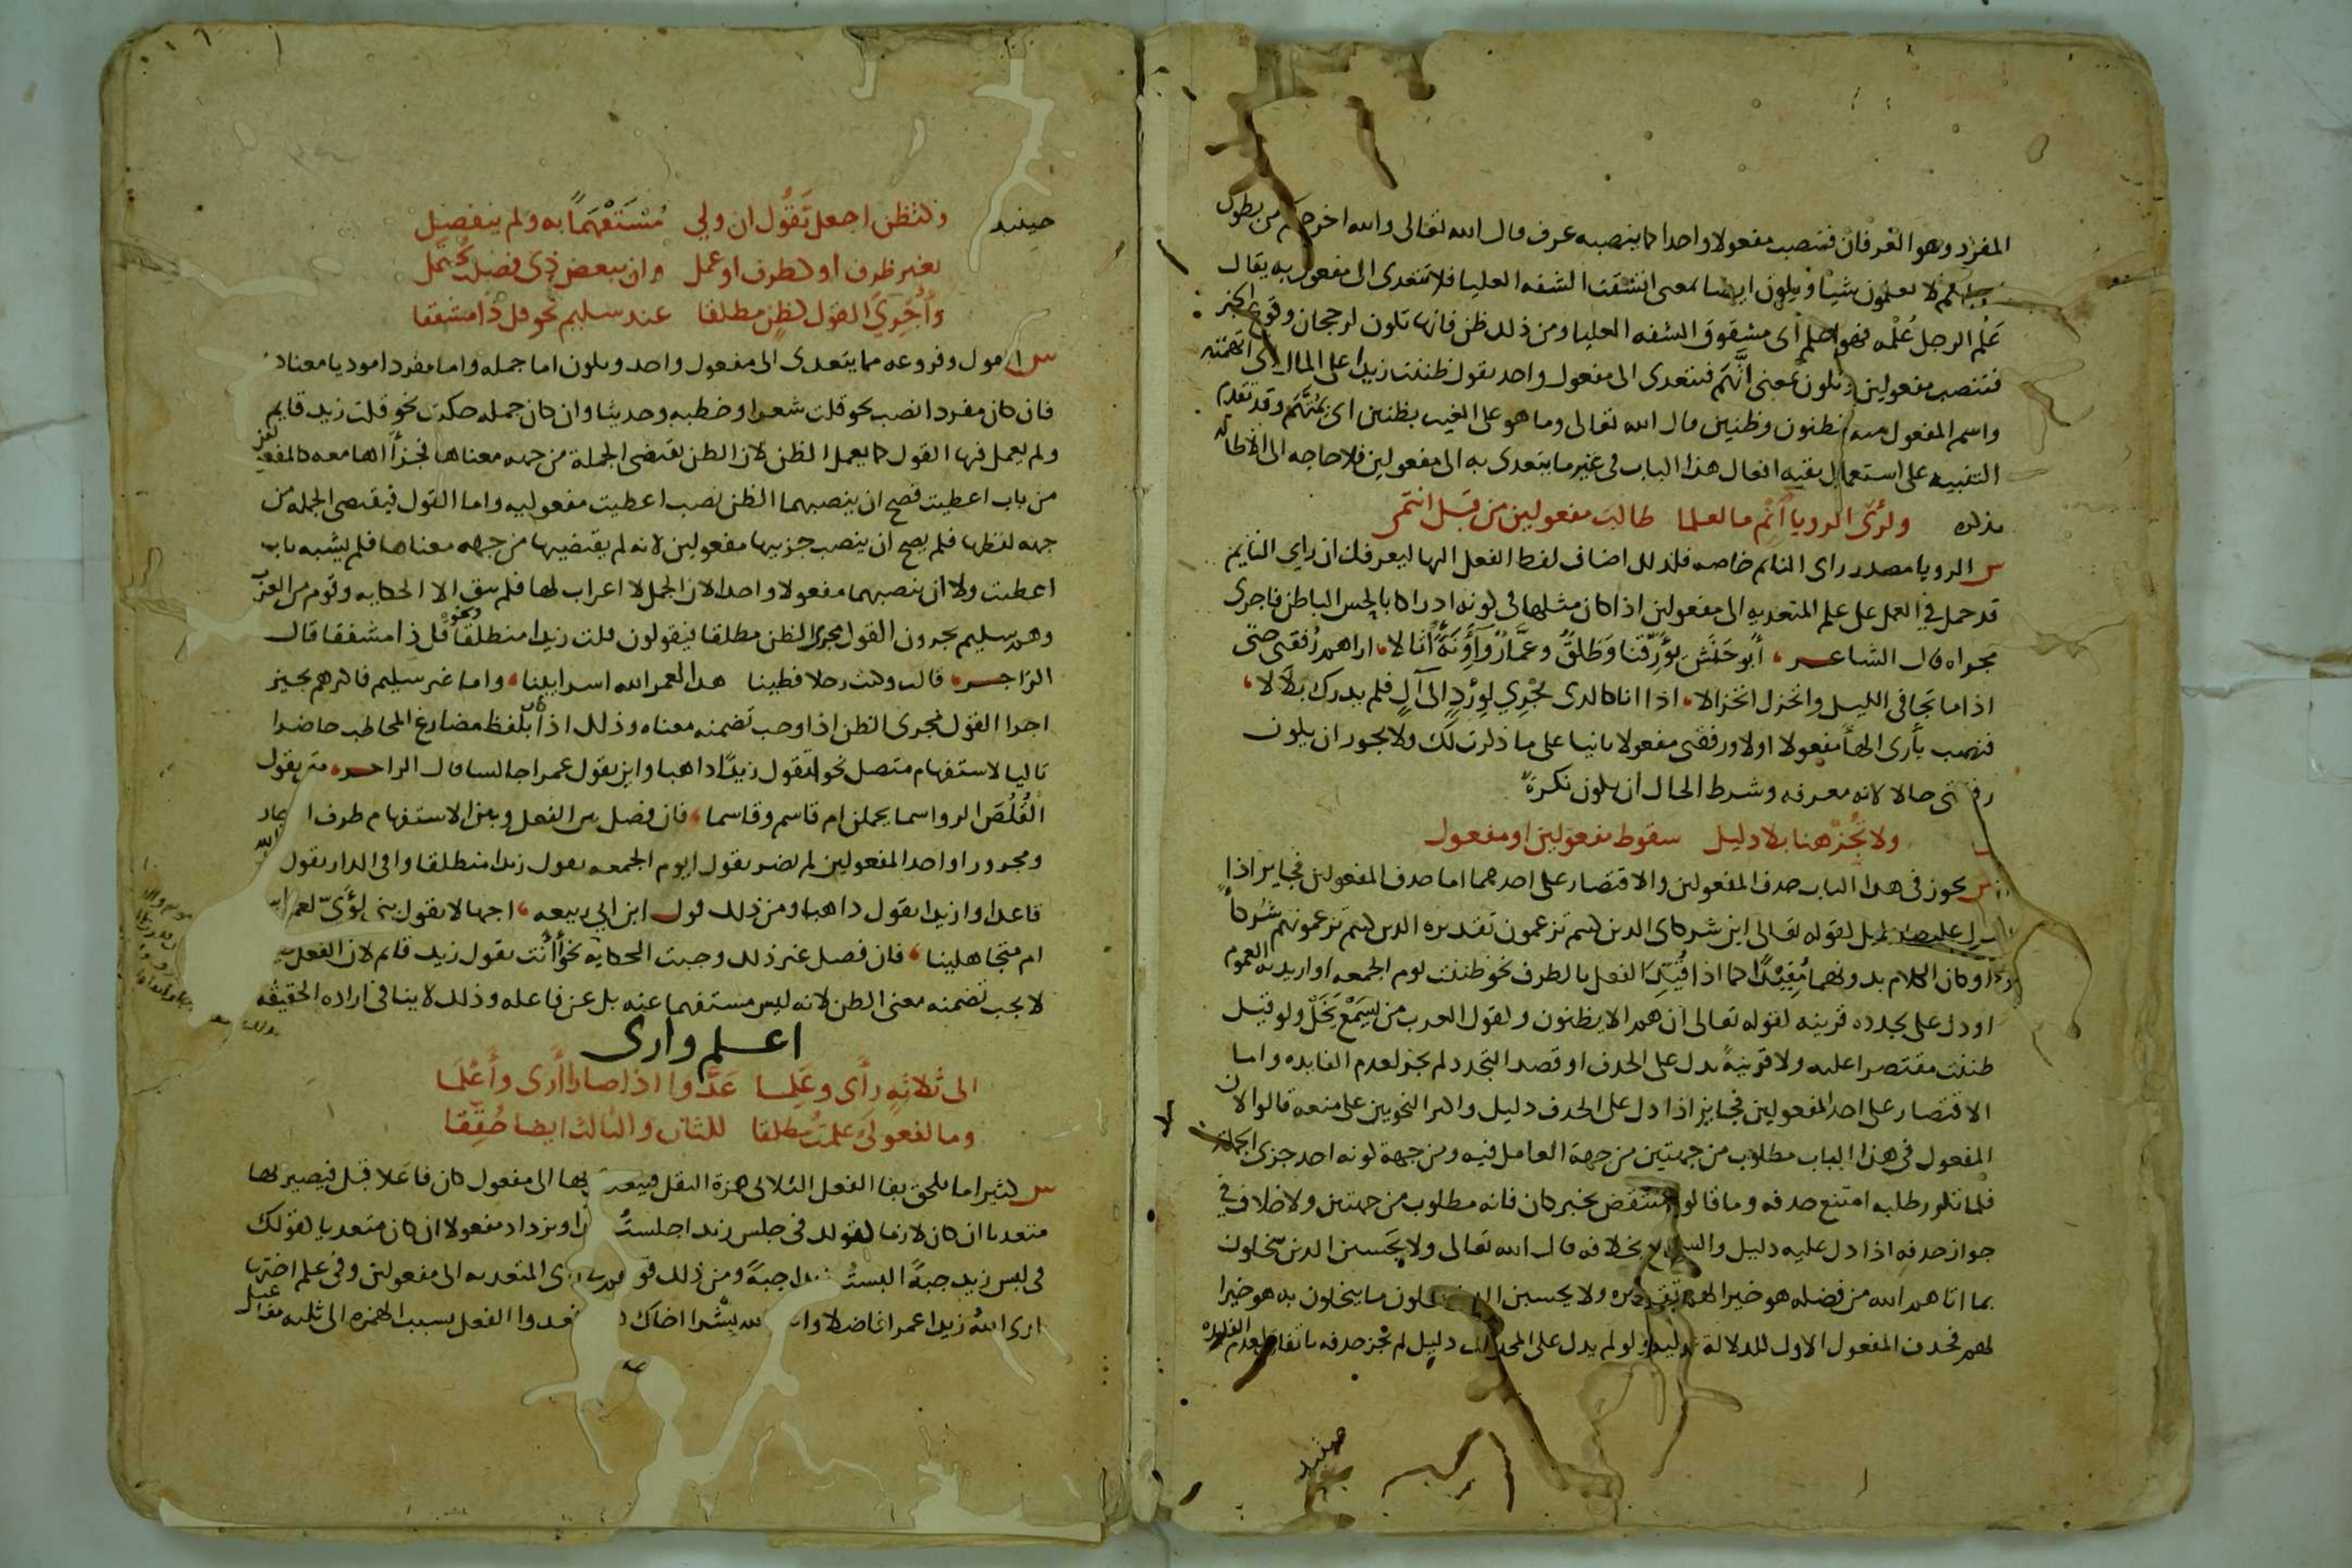 المفرد وهو العرفان فتنصب مفعولا واحدا كما ينصبه عرف قال الله تعالى والله اخرجكم من بطون
لا تعلمون شيئا وتكون ايضا بمعنى انشقت الشفه العليا فلا تتعدى الى مفعول به يقال
عَلِم الرجل عُلْمه فهو اعلم اى مشقوق الشفه العليا ومن ذلك ظن فانها تكون لرجحان وقوع الخبر
فتنصب مفعولين وتكون بمعنى اتَّهَم فتتعدى الى مفعول واحد تقول ظننت زيدا على المال اى اتهمته
واسم المفعول منه مظنون وظنين قال الله تعالى وما هو على الغيب بظنين اى بمُتَّهَم وقد تقدم
التنبيه على استعمال بقيه افعال هذا الباب فى غير ما يتعدى به الى مفعولين فلا حاجه الى الاطاله
بذكره ولرأى الرويا اَنْمِ ما لعلما طالب مفعولين من قبل انتمى
س الرويا مصدر راى النائم خاصه فلذلك اضاف لفظ الفعل اليها ليعرفك ان راى النايم
قد حمل فى العمل على علم المتعديه الى مفعولين اذ كان مثلها فى كونه ادراكا بالحس الباطن فاجرى
مجراه قال الشاعر، أبو حَنَشٍ يُؤَرِّقنا وَطَلْقٌ وعمَّارٌ وآوِنَةً أُثالا، اراهم رُفقتى حتى
اذا ما تجافى الليل وانخزل انخزالا، اذا انا كالذى يَجْرِي لوِرْدٍ الى آلٍ فلم يدرك بِلالا،
فنصب بأرى الهآ مفعولا اولا ورفقتى مفعولا ثانيا على ما ذكرت لك ولا يجوز ان يكون
رفقتى حالا لانه معرفه وشرط الحال ان يكون نكرة
ولا تُجِز هنا بلا دليل سقوط مفعولين او مفعول
س يجوز فى هذا الباب حذف المفعولين والاقتصار على احدهما اما حذف المفعولين فجايز اذا
دليل كقوله تعالى اين شركاى الذين كنتم تزعمون تقديره الذين كنتم تزعمونهم شركاءَ
او كان الكلام بدونهما مُفِيدًا كما اذا قُيِّدَ الفعل بالظرف نحو ظننت يوم الجمعه او اريد به العموم
او دل على تجدده قرينه كقوله تعالى ان هم الا يظنون وكقول العرب من يَسْمَعْ يَخَلْ ولو قيل
ظننت مقتصرا عليه ولا قرينةً تدل على الحذف او قصد التجدد لم يجز لعدم الفايده واما
الاقتصار على احد المفعولين فجايز اذا دل على الحذف دليل واكثر النحويين على منعه قالوا لان
المفعول فى هذا الباب مطلوب من جهتين من جهة العامل فيه ومن جهة كونه احد جزى الجملة
فلما تكرر طلبه امتنع حذفه وما قالوه منتقض بخبر كان فانه مطلوب من جهتين ولا خلاف فى
جواز حذفه اذا دل عليه دليل والسماع بخلافه قال الله تعالى ولا يَحْسبن الذين يبخلون
بما اتاهم الله من فضله هو خيرا لهم تقديره ولا يحسبن الذين يبخلون ما يبخلون به هو خيرا
لهم فحذف المفعول الاول للدلالة عليه ولو لم يدل على المحذوف دليل لم تجز حذفه باتفاق لعدم الفايده
حينئذ
حينئذ وكتظن اجعل تَقُول ان ولي مُسْتَفْهَمًا به ولم ينفصل
بغير ظرف او كظرف او عمل وان ببعض ذى فصلت يُحتمل
وأُجْرِيَ القول كظنٍ مطلقا عند سليم نحو قل ذا مشفقا
س القول وفروعه مما يتعدى الى مفعول واحد ويكون اما جمله واما مفرد امودیا معناه
فان كان مفردا نصب نحو قلت شعرا وخطبه وحديثا وان كان جمله حكيت نحو قلت زيد قايم
ولم يعمل فيها القول كما يعمل الظن لان الظن يقتضى الجملة من جهه معناها فجزآاها معه كالمفعولين
من باب اعطيت فصح ان ينصبهما الظن نصب اعطيت مفعوليه واما القول فيقتضى الجمله من
جهه لفظها فلم يصح ان ينصب جزييها مفعولين لانه لم يقتضيها من جهه معناها فلم يشبه باب
اعطيت ولا ان ينصبهما مفعولا واحدا لان الجمل لا اعراب لها فلم يبق الا الحكايه وقوم من العرب
وهم سليم يجرون القول مجرى الظن مطلقا فيقولون قلت زيدا منطلقا ونحو قل ذا مشفقا قال
الراجز، قالت وكنت رجلا فطينا هذا لعمر الله اسراينا، واما غير سليم فاكثرهم يجيز
اجرا القول مجرى الظن اذا وجب تضمنه معناه وذلك اذا كان بلفظ مضارع المخاطب حاضرا
تاليا لاستفهام متصل نحو اتقول زيدًا ذاهبا واين تقول عمرا جالسا قال الراجز، متى تقول
القُلُصَ الرواسما يحملن ام قاسم وقاسما، فان فصل بين الفعل وبين الاستفهام ظرف او جار
ومجرور او احد المفعولين لم يضر تقول ايوم الجمعه تقول زيدا منطلقا وافى الدار تقول عبد الله
قاعدا وازيدا تقول ذاهبا ومن ذلك قول ابن ابى ربيعه، اجهالا تقول بنى لُؤَىّ لعمر ابيك
ام متجاهلينا، فان فصل غير ذلك وجبت الحكايه نحو أأنت تقول زيد قائم لان الفعل
لا يجب تضمنه معنى الظن لانه ليس مستفهما عنه بل عن فاعله وذلك لا ينافى اراده الحقيقه
اعلم وارى
الى ثلاثةٍ رأَى وعَلِما عَدَّوا اذا صارا أَرى وأَعْلَما
وما لمفعولَىْ علمتُ مطلقا للثان والثالث ايضا حُقِّقا
س كثيرا ما يلحق بفا الفعل الثلاثى همزة النقل فيتعدى بها الى مفعول كان فاعلا قبل فيصير بها
متعديا ان كان لازما كقولك فى جلس زيد اجلستُ زيدا ويزداد مفعولا ان كان متعديا كقولك
فى لبس زيد جبةً البستُ زيدا جبةً ومن ذلك قولهم فى رأى المتعديه الى مفعولين وفى علم اختها
ارى اللهُ زيدا عمرا فاضلا واعلم الله بِشْرا اخاك فعدوا الفعل بسبب الهمزه الى ثلثه مفاعيل